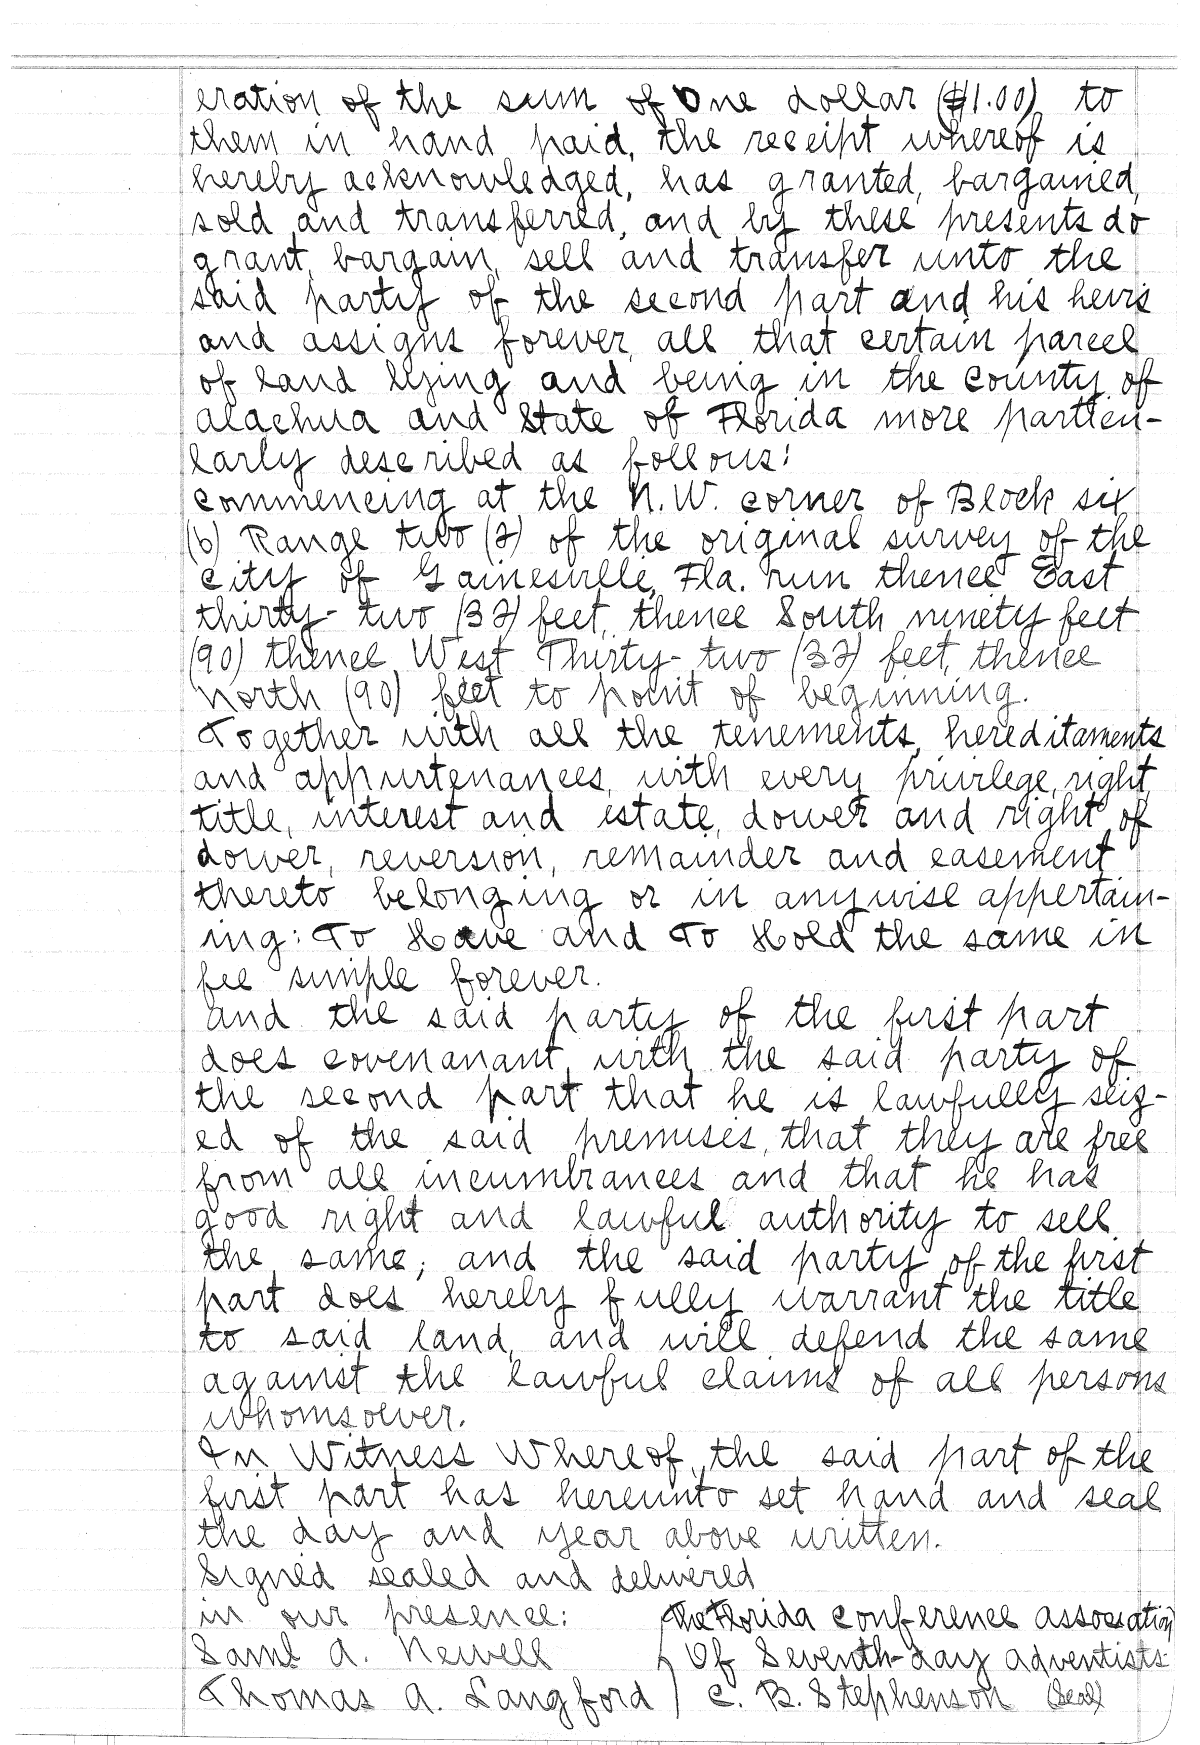 eration of the sum of One dollar ($1.00) to
them in hand paid, the receipt whereof is
hereby acknowledged, has granted, bargained,
sold and transferred, and by these presents do
grant, bargain, sell and transfer unto the
said party of the second part and his heirs
and assigns forever, all that certain parcel
of land lying and being in the County of
Alachua and State of Florida more particu-
larly described as follows:
Commencing at the N.W. corner of Block six
(6) Range two (2) of the original survey of the
City of Gainesville, Fla. run thence East
thirty-two (32) feet, thence South ninety feet
(90) thence West Thirty-two (32) feet, thence
north (90) feet to point of beginning.
Together with all the tenements, hereditaments
and appurtenances, with every privilege, right,
title, interest and estate, dower and right of
dower, reversion, remainder and easement
thereto belonging or in anywise appertain-
ing: To Have and To Hold the same in
fee simple forever.
and the said party of the first part
does covenanant with the said party of
the second part that he is lawfully seiz-
ed of the said premises, that they are free
from all incumbrances and that he has
good right and lawful authority to sell
the same; and the said party of the first
part does hereby fully warrant the title
to said land, and will defend the same
against the lawful claims of all persons
whomsoever.
In Witness Whereof, the said part of the
first part has hereunto set hand and seal
the day and year above written.
Signed sealed and delivered
in our presence: The Florida Conference Association
Saml A. Newell ) Of Seventh-day Adventists
Thomas A. Langford ) C. B. Stephenson (Seal)